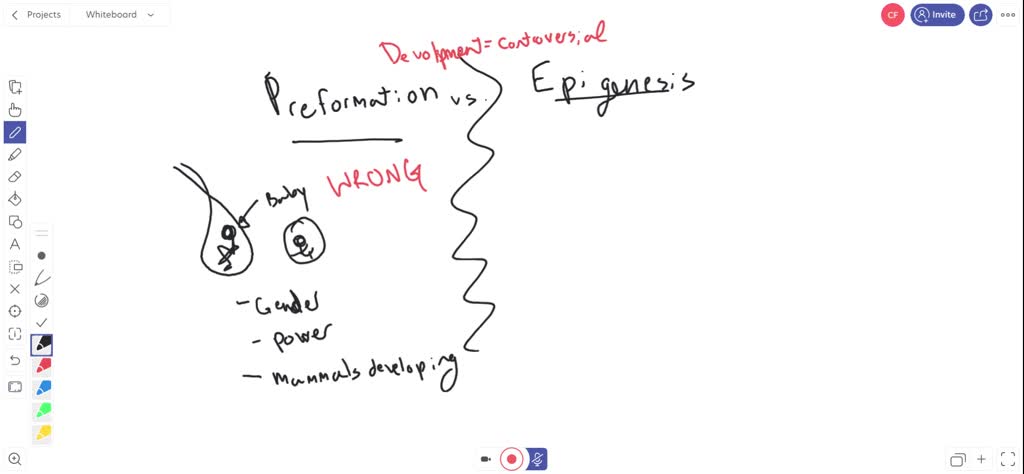 Projects
Whiteboard
CF
Invite
Devolpment = controversial
Preformation vs.
Epigenesis
WRONG
Baby
- Gender
- power
- mammals developing
A